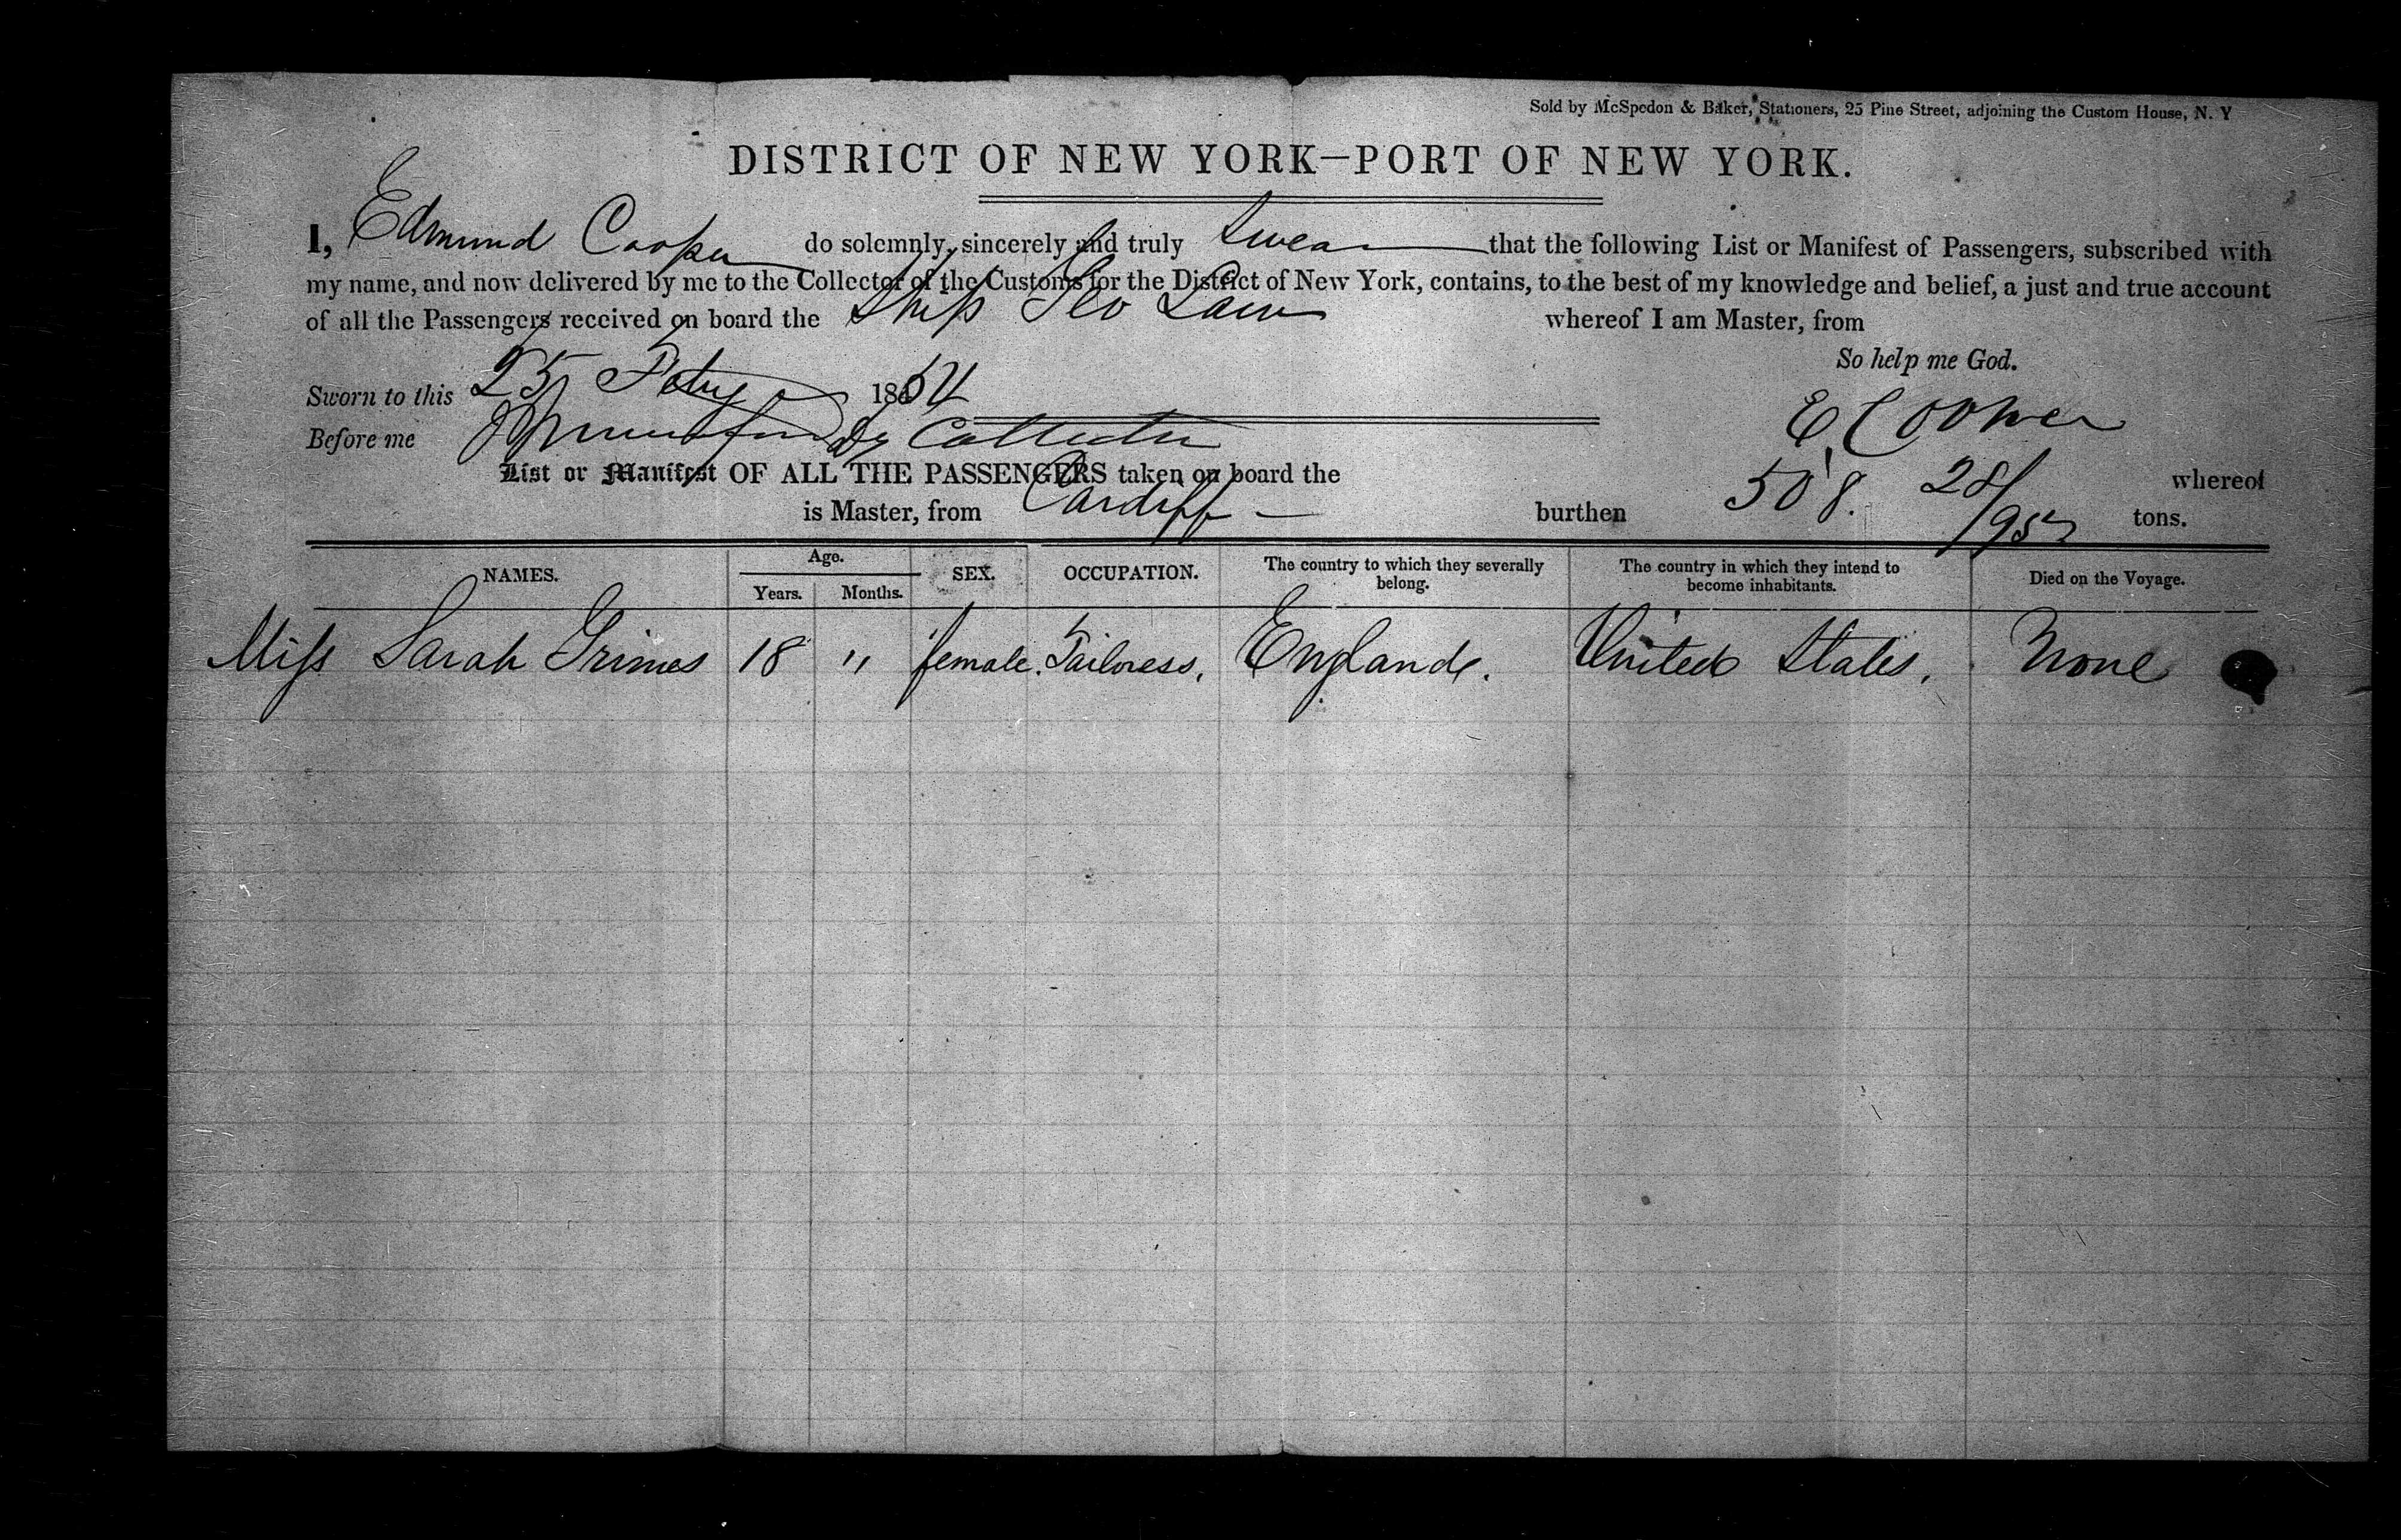 Sold by McSpedon & Baker, Stationers, 25 Pine Street, adjoining the Custom House, N. Y
DISTRICT OF NEW YORK—PORT OF NEW YORK.
I, Edmund Cooper do solemnly, sincerely and truly swear that the following List or Manifest of Passengers, subscribed with
my name, and now delivered by me to the Collector of the Customs for the District of New York, contains, to the best of my knowledge and belief, a just and true account
of all the Passengers received on board the Ship Geo Law whereof I am Master, from
So help me God.
Sworn to this 25 Feby 1854
Before me Dy Collector
E. Cooper
List or Manifest OF ALL THE PASSENGERS taken on board the whereof
is Master, from Cardiff — burthen 508. 28/95 tons.
NAMES. Age. Years. Months. SEX. OCCUPATION. The country to which they severally belong. The country in which they intend to become inhabitants. Died on the Voyage.
Miss Sarah Grimes 18 " female. Tailoress, England. United States. None